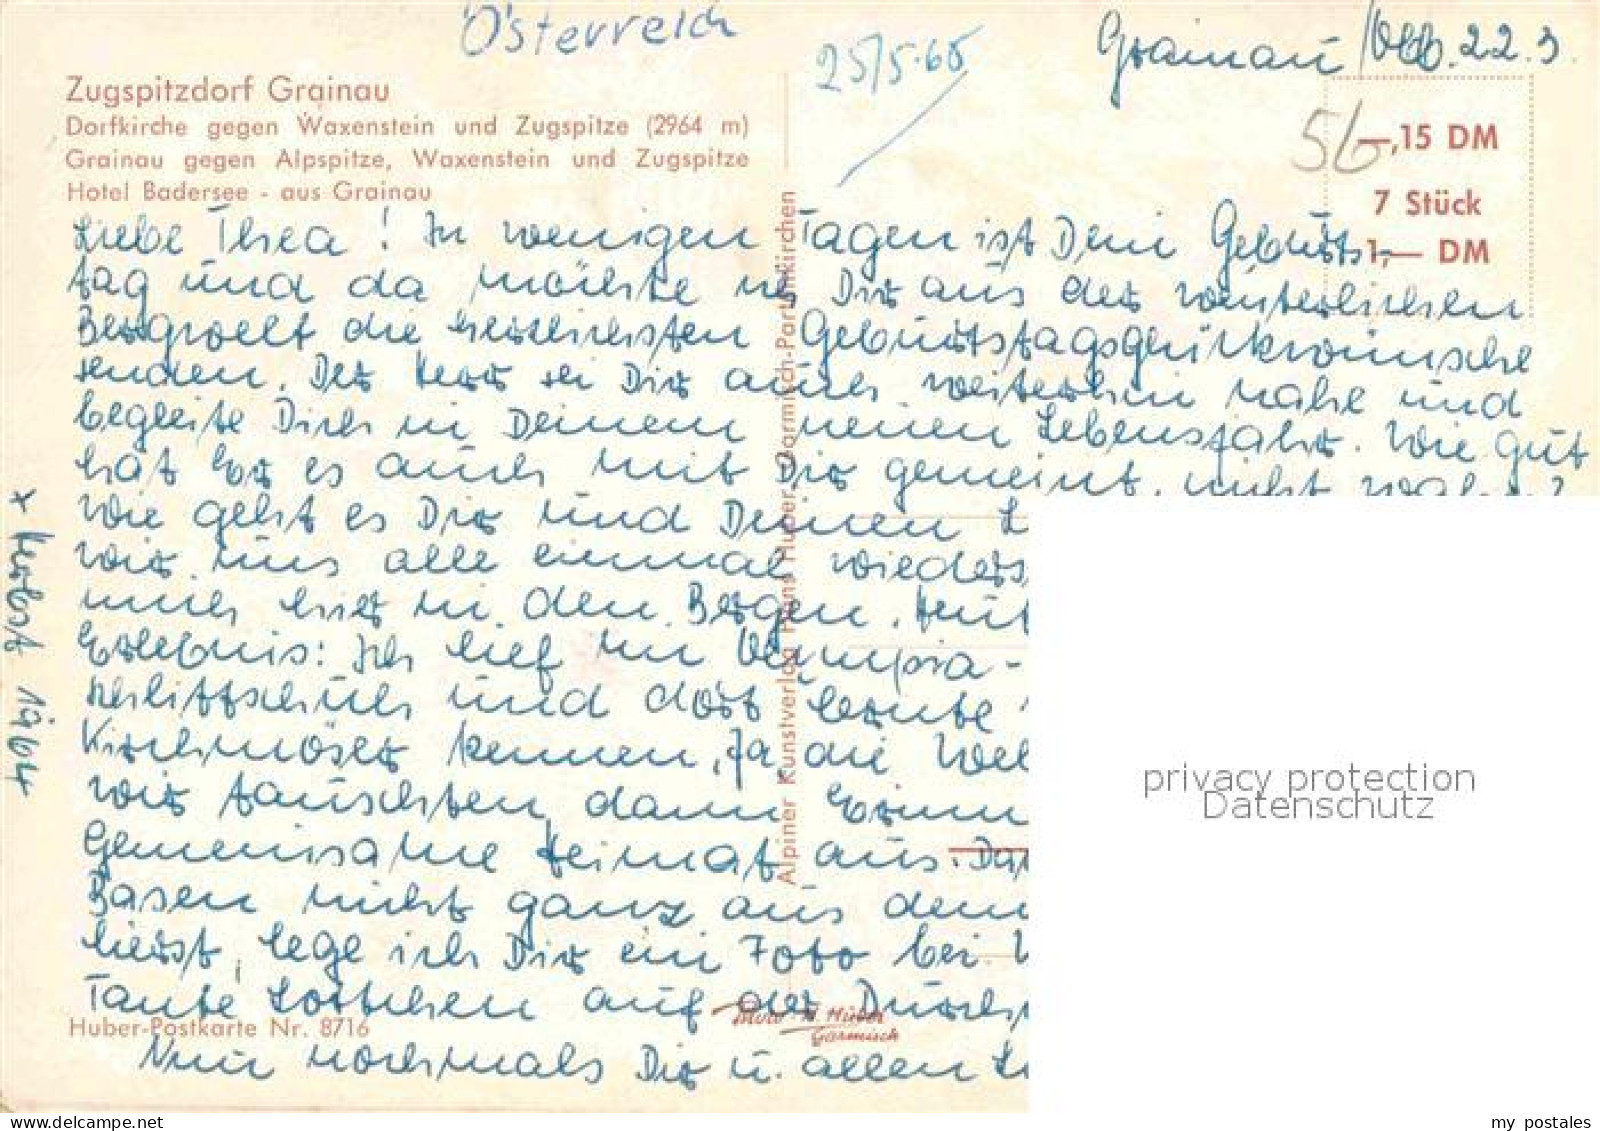 Österreich
25/5.65
Grainau/Obb. 22.3.
Zugspitzdorf Grainau
Dorfkirche gegen Waxenstein und Zugspitze (2964 m)
Grainau gegen Alpspitze, Waxenstein und Zugspitze
Hotel Badersee - aus Grainau
56
—,15 DM
7 Stück
1,— DM
Liebe Thea! In wenigen Tagen ist Dein Geburts-
tag und da möchte ich Dir aus der winterlichen
Bergwelt die herzlichsten Geburtstagsglückwünsche
senden. Der Herr sei Dir auch weiterhin nahe und
begleite Dich in Deinem neuen Lebensjahr. Wie gut
hat Er es auch mit Dir gemeint, nicht wahr?
Wie geht es Dir und Deinen L
wir uns alle einmal wieders
mich hier in den Bergen. Heut
Erlebnis: Ich lief im Olympia-
Schlittschuh und dort lernte
Kirchmöser kennen, ja die Wel
wir tauschten dann Erinn
Gemeinsame Heimat aus. Da
Basen nicht ganz aus dem
lierst, lege ich Dir ein Foto bei.
Tante Lottchen auf der Durch
Nun nochmals Dir u. allen L
* Herbst 1964
Alpiner Kunstverlag Hans Huber, Garmisch-Partenkirchen
Huber-Postkarte Nr. 8716
Photo H. Huber
Garmisch
privacy protection
Datenschutz
my postales